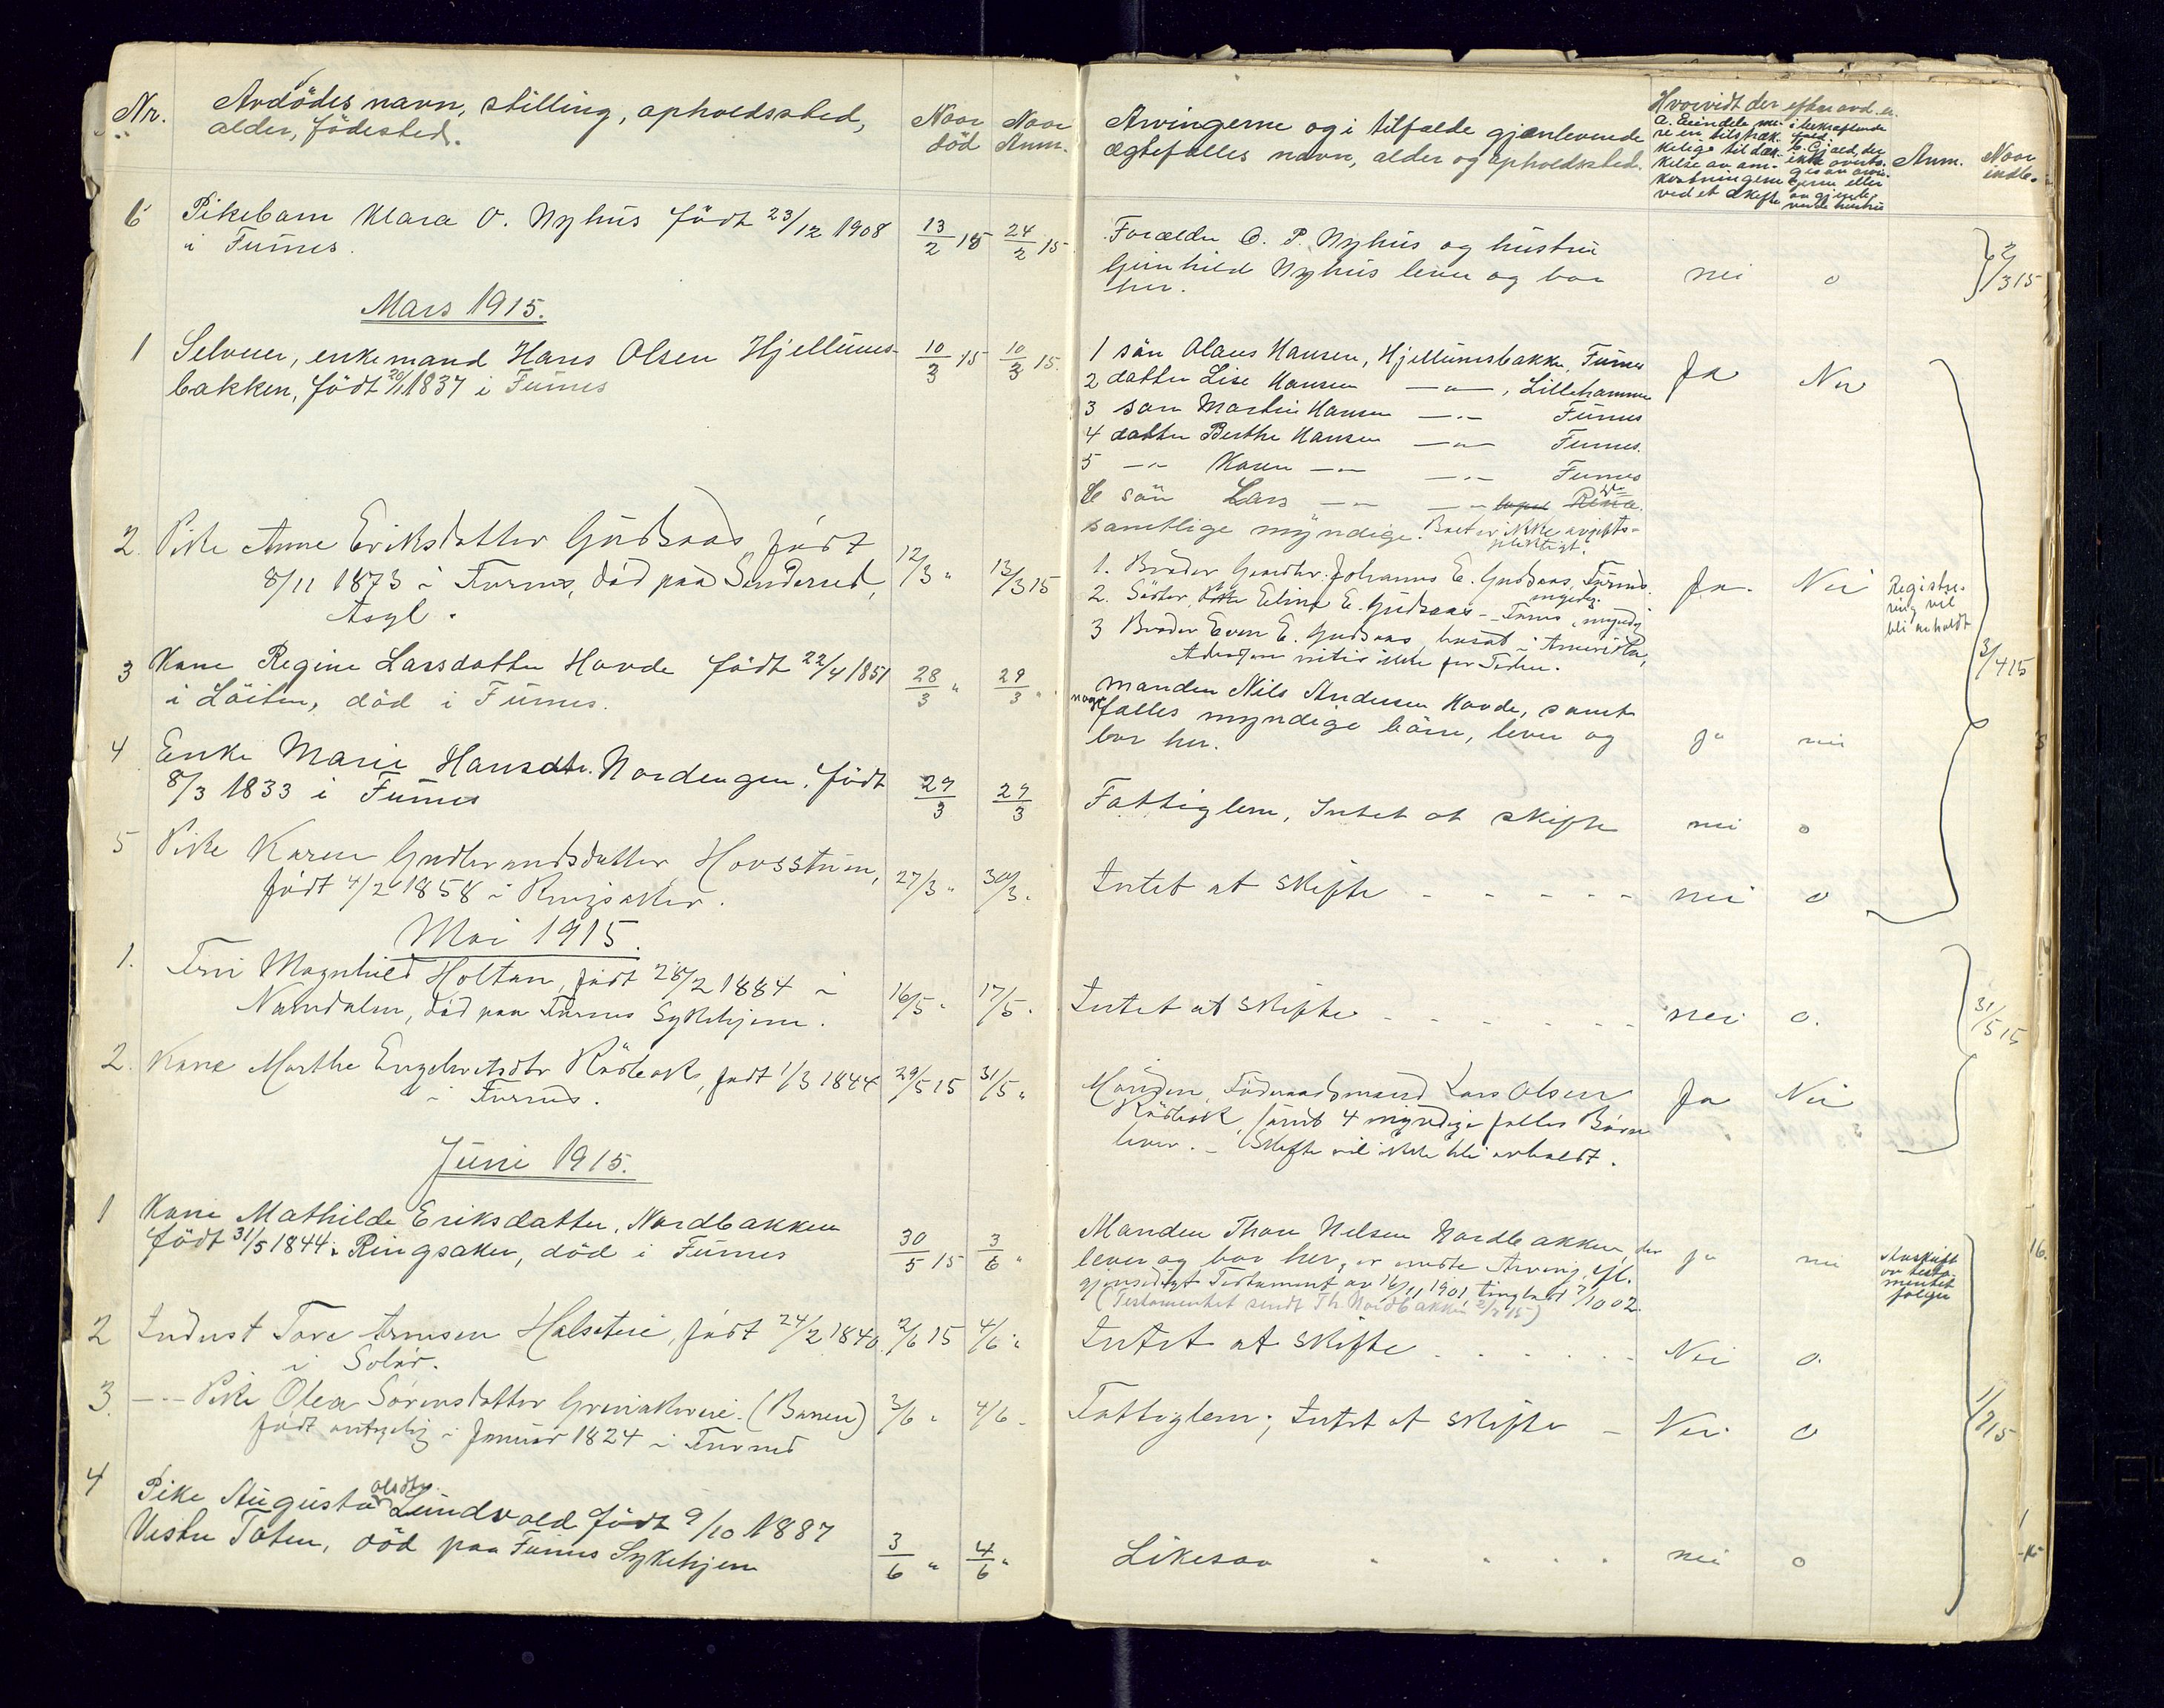 Nr. Avdödes navn, stilling, opholdssted,
alder, födested.
Naar död
Naar Anm.
Arvingerne og i tilfælde gjenlevende
ægtefælles navn, alder og opholdssted.
Hvorvidt der efter avd. er
Anm.
Naar
indb.
6 Pikebarn Klara O. Nyhus födt 23/12 1908 13/2 15 24/2 15
i Furnes.
Forældre O. P. Nyhus og hustru
Gunhild Nyhus lever og bor nei o
her.
2/3 15
Mars 1915.
1 Selveier, enkemand Hans Olsen Hjellums- 10/3 15 10/3 15.
bakken, födt 20/1 1837 i Furnes
1 sön Olaus Hansen, Hjellumsbakke, Furnes Ja Nei
2 datter Lise Hansen —"—, Lillehammer
3 sön Martin Hansen —"— Furnes
4 datter Berthe Hansen —"— Furnes.
5 —"— Karen —"— —"— Furnes
6 sön Lars —"— —"— Rena.
samtlige myndige. Boet er ikke avgifts-
pliktigt.
2. Pike Anne Eriksdatter Gudsaas födt 12/3 " 13/3 15
8/11 1873 i Furnes, död paa Sinderud
Asyl.
1. Broder Johannes E. Gudsaas, Furnes Ja. Nei
myndig.
2. Söster Eline E. Gudsaas - Furnes, myndig
3 Broder Even E. Gudsaas, bosat i Amerika,
Adressen vites ikke for Tiden.
Registre-
ring vil
bli anholdt
3/4 15
3 Kone Regine Larsdatter Hovde födt 22/4 1851 28/3 " 29/3 "
i Löiten, död i Furnes.
Manden Nils Andersen Hovde, samt
fælles myndige börn, lever og ja nei
bor her.
4 Enke Marie Hansdtr. Nordengen, födt 29/3 29/3
8/3 1833 i Furnes
Fattiglem, Intet at skifte nei o
5 Pike Karen Gudbrandsdatter Hovsstuen, 27/3 " 30/3 .
födt 4/2 1858 i Ringsaker.
Intet at skifte - - - - - nei o
Mai 1915.
1. Fru Magnhild Holtan, födt 28/2 1884 i 16/5 " 17/5 .
Namdalen, död paa Furnes Sykehjem.
Intet at skifte - - - - - nei o.
31/5 15
2. Kone Marthe Engebretsdtr Rödbak, födt 1/3 1844 29/5 15 31/5 "
i Furnes.
Manden, Föderaadsmand Lars Olsen Ja Nei
Rödbak, samt 4 myndige fælles Börn
lever. - Skifte vil ikke bli anholdt.
Juni 1915.
1 Kone Mathilde Eriksdatter, Nordbakken 30/5 15 3/6 "
födt 31/5 1844 i Ringsaker, död i Furnes
Manden Thor Nilsen Nordbakken, der ja nei
lever og bor her, er eneste Arving, efl.
gjensidigt Testament av 16/11 1901 tinglæst 7/10 02.
(Testamentet sendt Th. Nordbakken 2/7 15)
Avskrift
av testa-
mentet
følger
16.
2 Indust Tore Arnesen Halseteie, födt 24/2 1840 2/6 15 4/6 "
i Solör.
Intet at skifte - - - - - Nei o.
3. —"— Pike Olea Sörensdatter Greviakereie (Banen) 3/6 " 4/6 -
födt antagelig i Januar 1824 i Furnes
Fattiglem; Intet at skifte - Nei o
1/7 15
4 Pike Augusta Olsdtr Lundvold födt 9/10 1887
Vestre Toten, död paa Furnes Sykehjem 3/6 " 4/6 "
Likesaa " " " nei o